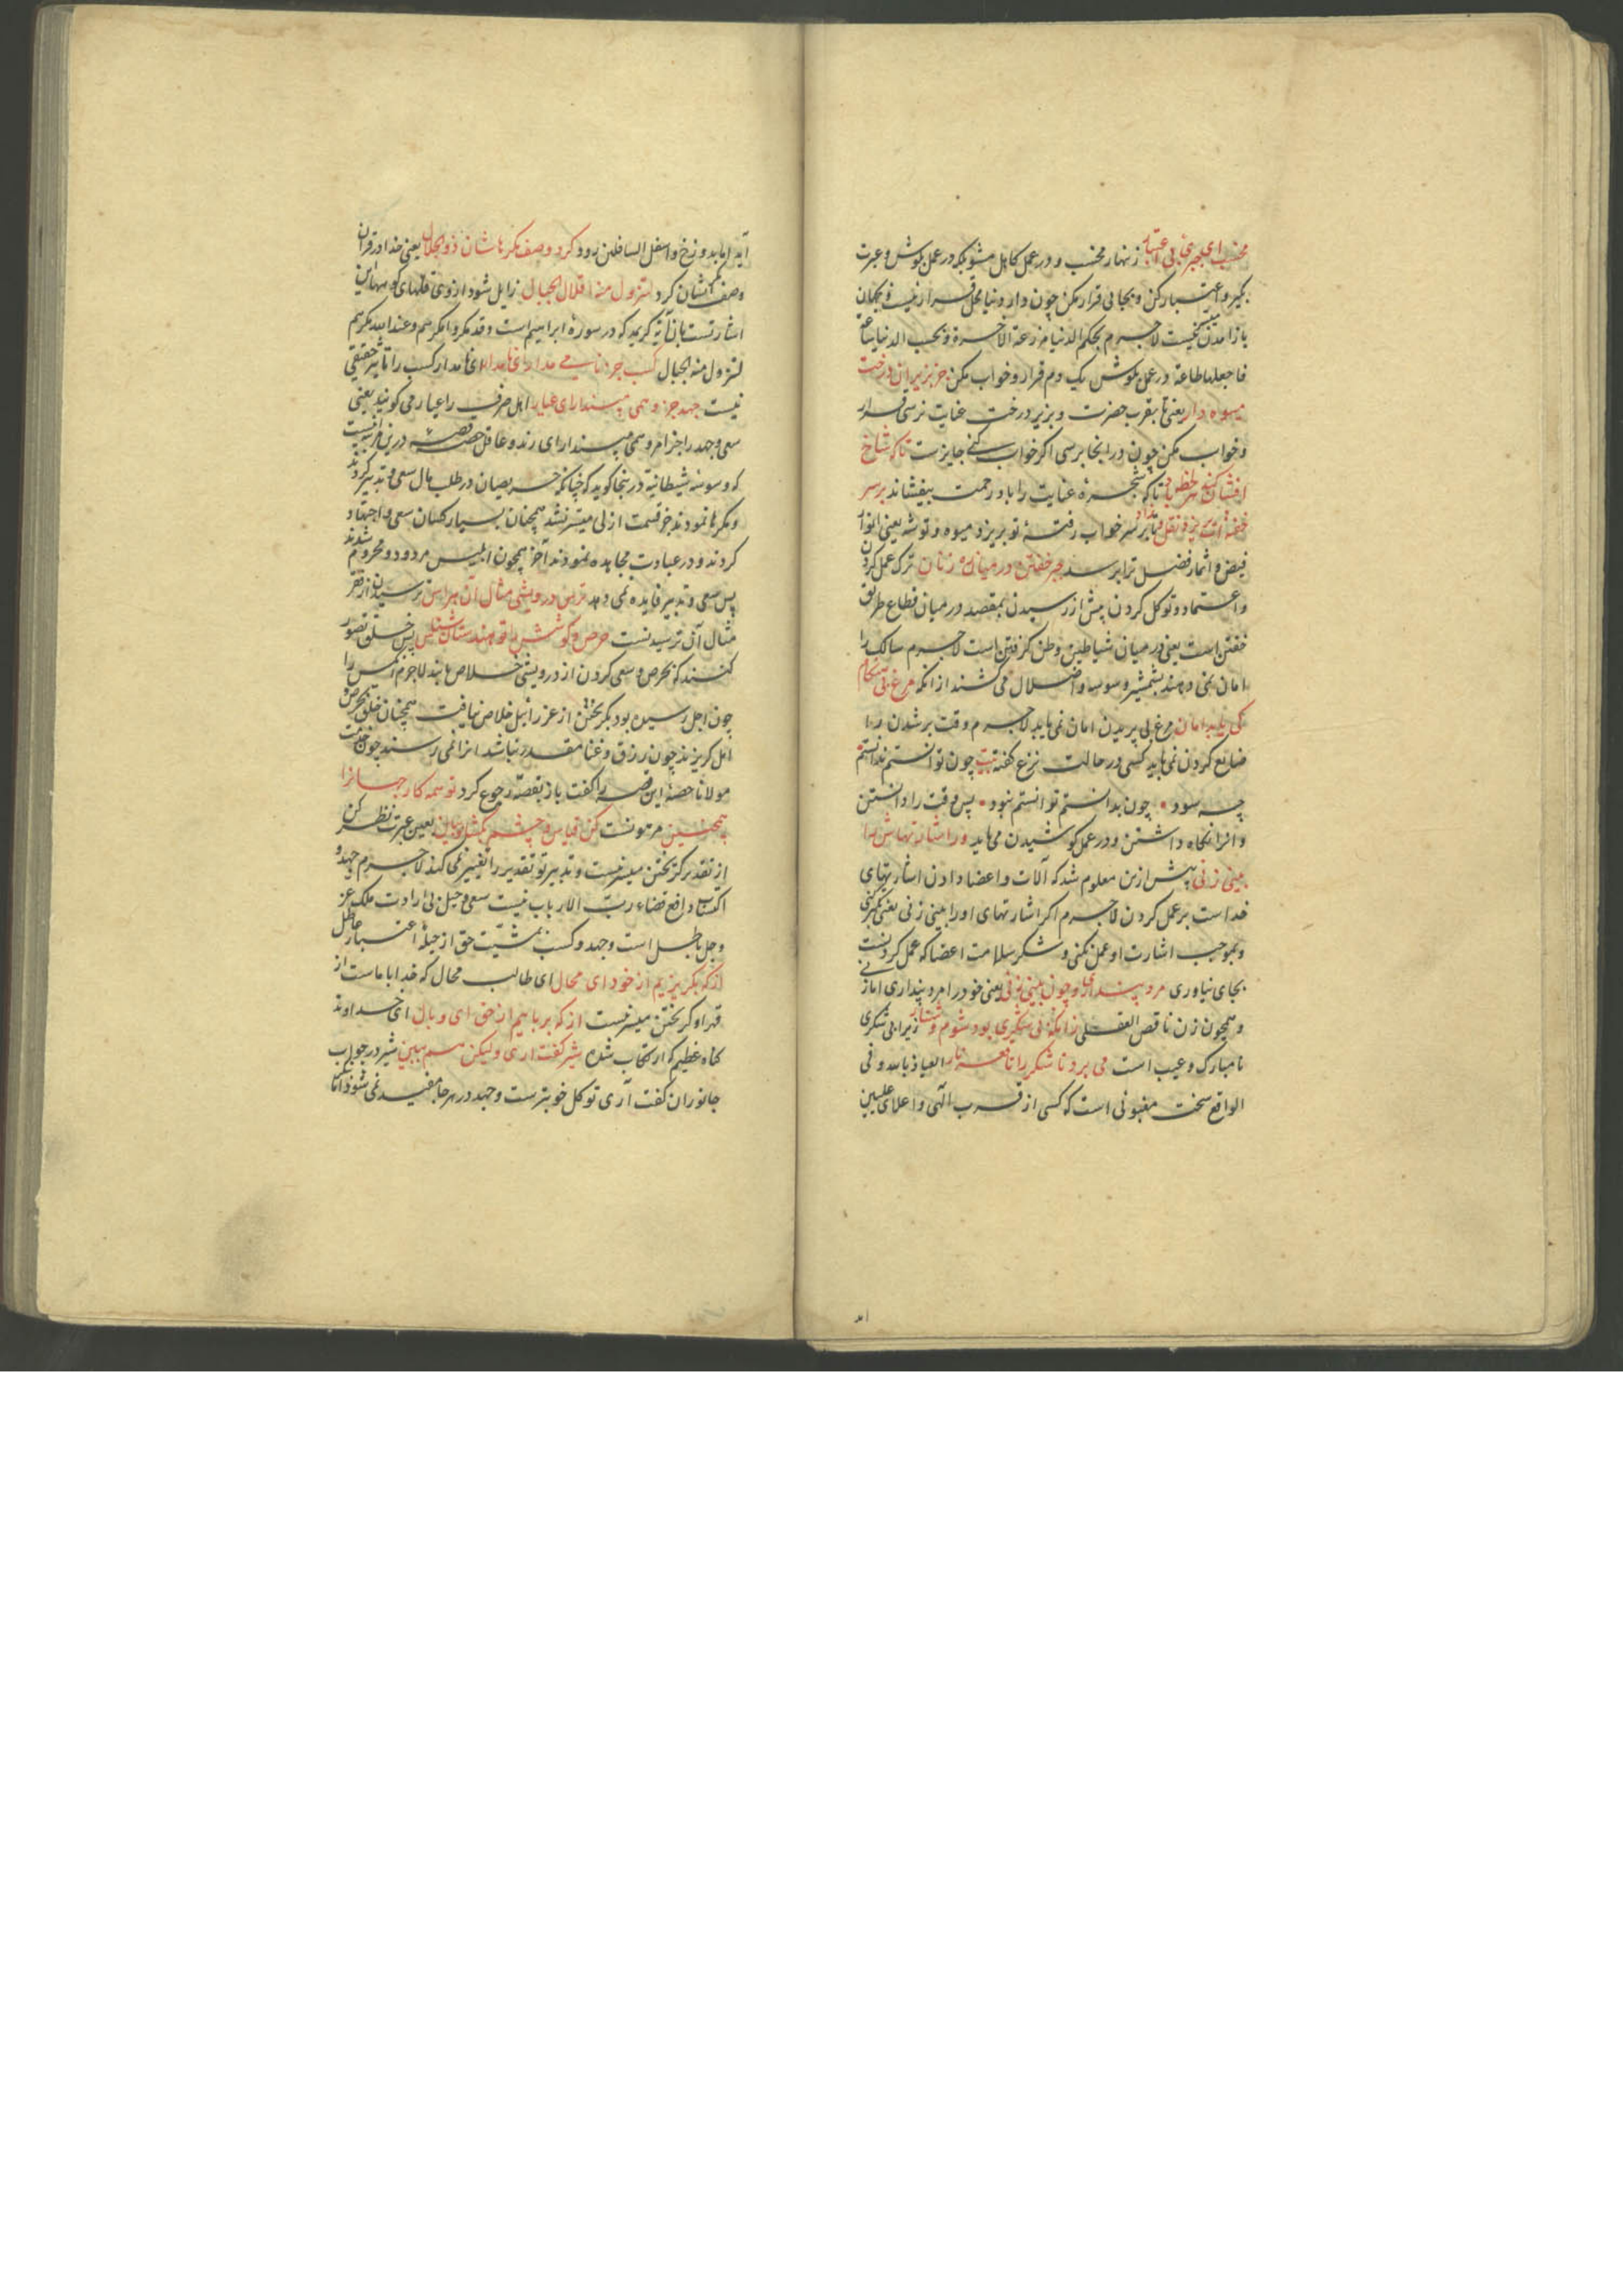 مخسب ای جبری بی اعتبار زنهار مخسب و در عمل کاهل مشو بلکه در عمل بکوش و عبرت
بگیر و اعتبار کن و بجایی قرار مکن چون دار دنیا محل قرار نیست و بجهان
باز آمدن نیست لاجرم بحکم الدنیا مزرعة الاخرة و بحسب الدنیا ساعة
فاجعلها طاعة در عمل بکوش یک دم قرار و خواب مکن جز بزیر آن درخت
میوه دار یعنی تا بقرب حضرت و بزیر درخت عنایت نرسی قرار
و خواب مکن چون در آنجا برسی اگر خواب کنی جایزست تا که شاخ
افشان کند هر لحظه باد تا که شجره عنایت را باد رحمت بیفشاند بر سر
خفته بریزد نقل و زاد بر سر خواب رفته تو بریزد میوه و توشه یعنی انوار
فیض و اثمار فضل ترا برسد جبر خفتن در میان ره زنان ترک عمل کردن
و اعتماد و توکل کردن پیش از رسیدن بمقصد در میان قطاع طریق
خفتن است یعنی در میان شیاطین وطن گرفتن است لاجرم سالک را
امان نمی دهند بشمشیر وسوسه و اضلال می کشند از آنکه مرغ بی هنگام
کی یابد امان مرغ بی پریدن امان نمی یابد لاجرم وقت بر شدن را
ضایع کردن نمی باید کسی در حالت نزع گفته بیت چون توانستم ندانستم
چه سود چون بدانستم توانستم نبود پس وقت را دانستن
و آنرا نگاه داشتن و در عمل کوشیدن می باید ور اشارتهاش را
بینی زنی پیش ازین معلوم شد که آلات و اعضا دادن اشارتهای
خداست بر عمل کردن لاجرم اگر اشارتهای او را بینی زنی یعنی
و بموجب اشارت او عمل نکنی و شکر سلامت اعضا که عمل کردنست
بجای نیاوری مرد پنداری و چون بینی زنی یعنی خود را مرد پنداری اما زنی
و همچون زن ناقص العقلی زانکه بی شکری بود شوم و شنار زیرا بی شکری
نامبارک و عیب است می برد ناشکر را تا قعر نار العیاذ بالله و فی
الواقع سخت مغبونی است که کسی از قرب الهی و اعلای علیین
آید
آید اما بدوزخ و اسفل السافلین رود کرد وصف مکرهاشان ذو الجلال یعنی خدا در قرآن
وصف مکرشان کرد لتزول منه اقلال الجبال زایل شود از وی قلهای کوهها این
اشارتست بآن آیه کریمه که در سوره ابراهیم است و قد مکروا مکرهم و عند الله مکرهم
لتزول منه الجبال کسب جز نامی مدان ای نامدار ای نامدار کسب را تأثیر حقیقی
نیست جهد جز وهمی مپندار ای عیار اهل صرف را عیار می گویند یعنی
سعی و جهد را جز امر وهمی مپندار ای رند و عاقل حصه قصه درین
که وسوسه شیطانیه در اینجا گوید که چنانکه حریصان در طلب مال سعی و تدبیر کردند
و مکرها نمودند جز قسمت ازلی میسر نشد همچنان بسیار کسان سعی و اجتهاد
کردند و در عبادت مجاهده نمودند آخر همچون ابلیس مردود و محروم شدند
پس سعی و تدبیر فایده نمی دهد ترس درویشی مثال آن هراس ترسیدن از فقر
مثال آن ترسیدنست حرص و کوشش را تو هندستان شناس پس خلق تصور
کنند که بحرص و سعی کردن از درویشی خلاص یابند لاجرم آنکس را
چون اجل رسیده بود بگریختن از عزرائیل خلاص نیافت همچنان خلق بحرص و
امل گریزند چون رزق و غنا مقدر نباشد آنرا نمی رسند چون حضرت
مولانا حصه این قصه را گفت باز بقصه رجوع کرد تو همه کار جهانرا
همچنین مرتونست کن قیاس و چشم بگشا و ببین بعین عبرت نظر کن
از تقدیر گریختن میسر نیست و تدبیر تو تقدیر را تغییر نمی کند لاجرم جهد و
اکتساب دافع قضاء رب الارباب نیست سعی و حیل بی ارادت ملک عز
و جل باطل است و جهد و کسب بی مشیت حق از حیله اعتبار عاطل
از که بگریزیم از خود ای محال ای طالب محال که خدا با ماست از
قهر او گریختن میسر نیست از که برباییم از حق ای وبال ای خداوند
گناه عظیم که ارتکاب شده شیر گفت آری ولیکن هم ببین شیر در جواب
جانوران گفت آری توکل خوبترست و جهد در هر جا مفید نمی شود اما